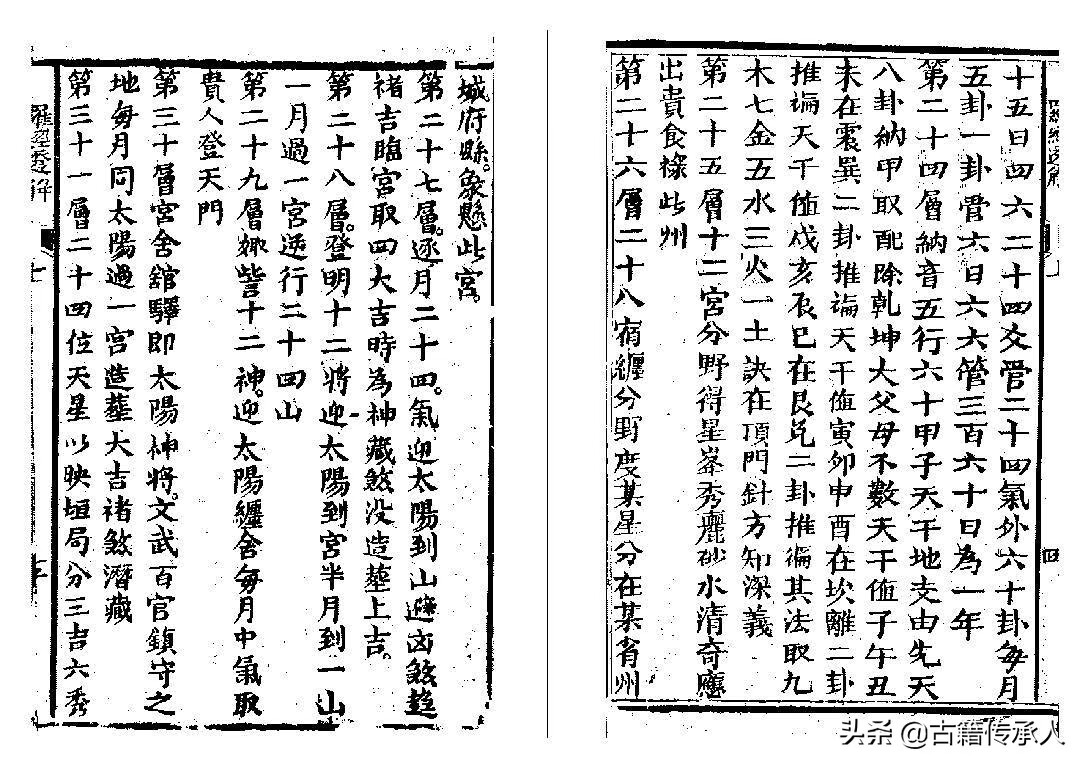 十五日四六二十四爻管二十四氣外六十卦每月
五卦一卦管六日六六管三百六十日為一年
第二十四層納音五行六十甲子天干地支由先天
八卦納甲取配除乾坤大父母不數天干值子午丑
未在震巽二卦推徧天干值寅卯申酉在坎離二卦
推徧天千值戌亥辰巳在艮兌二卦推徧其法取九
木七金五水三火一土訣在頂門針方知深義
第二十五層十二宮分野得星峯秀麗砂水清奇應
出貴食祿此州
第二十六層二十八宿纏分野度某星分在某省州
城府縣。象懸此宮。
第二十七層。逐月二十四。氣迎太陽到山避凶煞趋
禇吉臨宮取四大吉時為神藏煞没造塟上吉。
第二十八層。登明十二將迎太陽到宮半月到一山
一月過一宮逆行二十四山
第二十九層娵訾十二神。迎太陽纏舍每月中氣取
貴人登天門
第三十層宮舍舘驛即太陽神將。文武百官鎮守之
地每月同太陽過一宮造塟大吉禇煞潛藏
第三十一層二十四位天星以映垣局分三吉六秀
羅經透解
四
头条 @古籍传承人